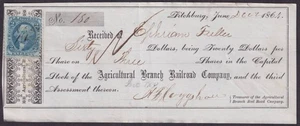 No. 150
Fitchburg, June 186
Received of Ephriam Fuller
Sixty Dollars, being Twenty Dollars per
Share on Three Shares in the Capital
Stock of the Agricultural Branch Railroad Company, and the third
Assessment thereon.
Treasurer of the Agricultural
Branch Rail Road Company.